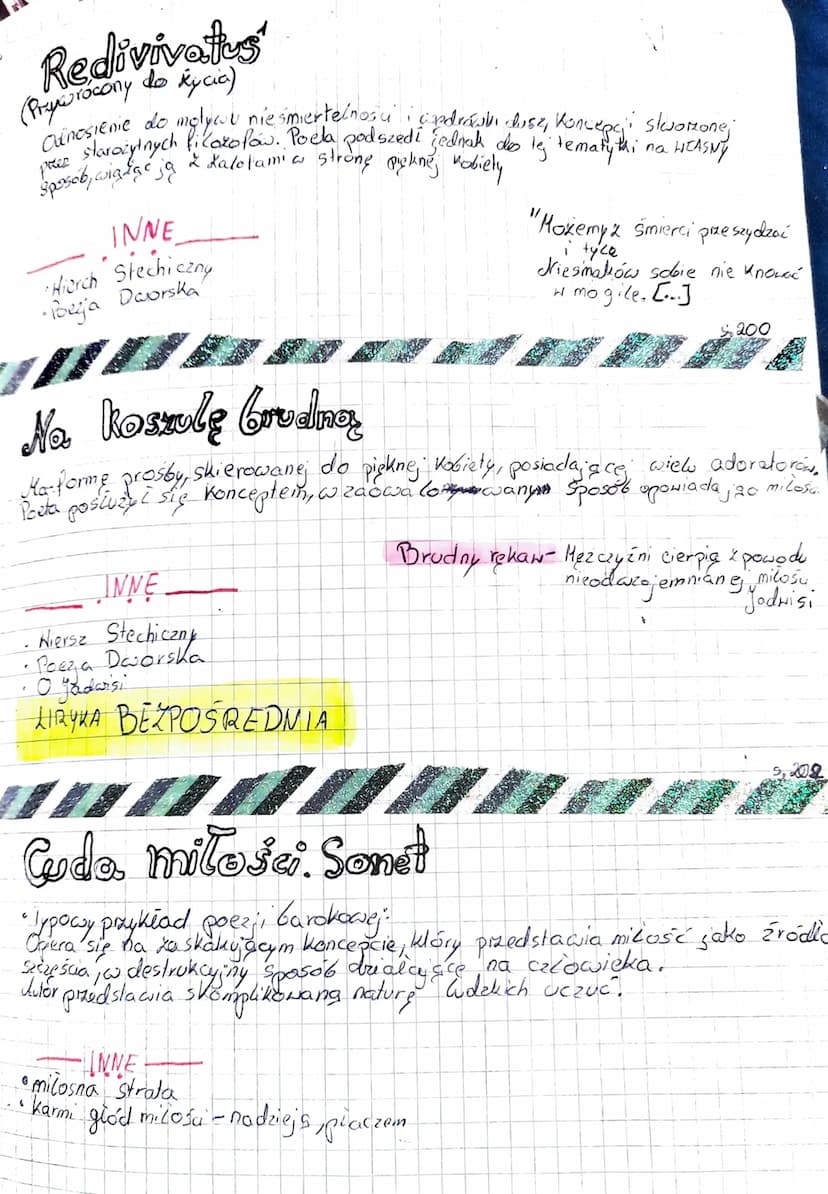 Redivivatus
(Przywrócony do życia)
Odnosienie do motywu nieśmiertelności i wędrówki duszy, koncepcji stworzonej
przez starożytnych filozofów. Poeta podszedł jednak do tej tematyki na WŁASNY
sposób, wiążąc ją z zalotami w stronę pięknej kobiety
INNE
• Wierch Stechiczny
• Poezja Dworska
"Możemy z śmierci przeszydzać
i tyle
Niesmaków sobie nie knować
w mogile. [...]
s. 200
Na koszulę brudną
Ma formę prośby, skierowanej do pięknej kobiety, posiadającej wielu adoratorów.
Poeta posłużył się konceptem, w sposób opowiadając o miłości
Brudny rękaw- Mężczyźni cierpią z powodu
nieodwzajemnianej miłości
Jadwisi
INNE
• Wiersz Stechiczny
• Poezja Dworska
• O Jadwisi
LIRYKA BEZPOŚREDNIA
s. 202
Cuda miłości. Sonet
• Typowy przykład poezji barokowej.
Opiera się na zaskakującym koncepcie, który przedstawia miłość jako źródło
szczęścia, w destrukcyjny sposób działające na człowieka.
Autor przedstawia skomplikowaną naturę ludzkich uczuć.
INNE
• miłosna strata
• karmi głód miłości - nadzieją, płaczem